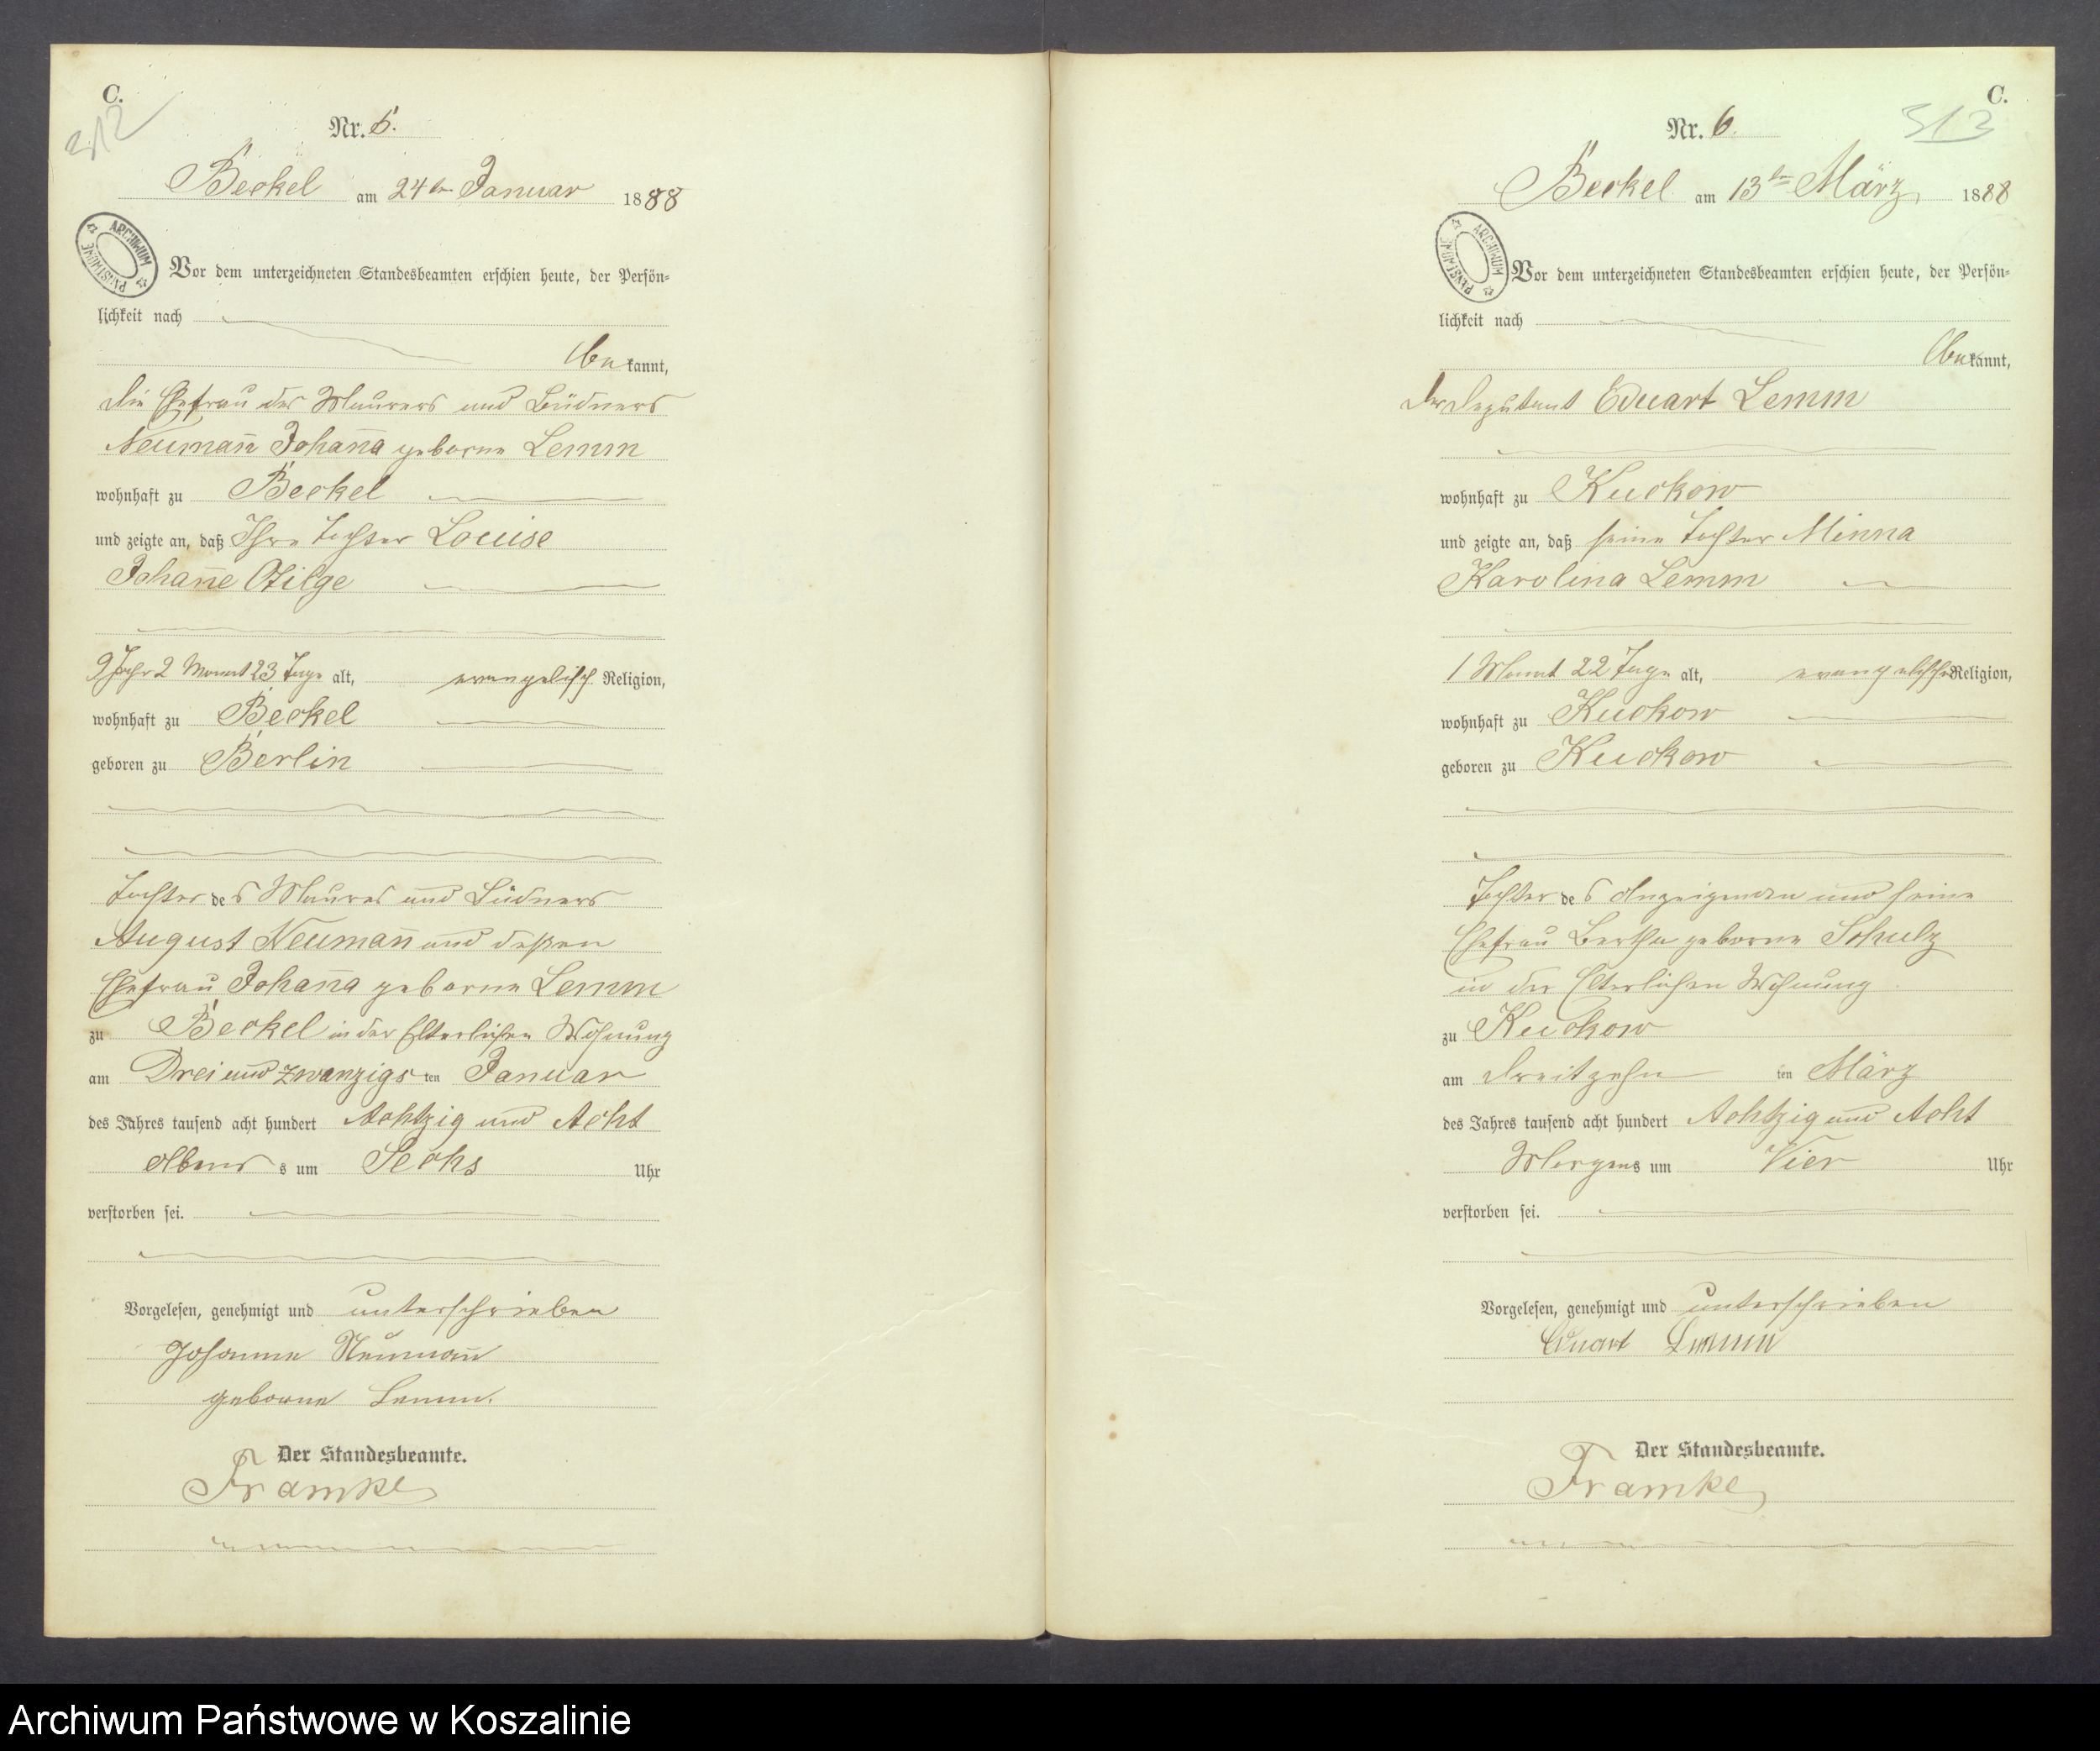 C.
312
Nr. 5.
Beckel am 24ten Januar 1888
ARCHIWUM PAŃSTWOWE
Vor dem unterzeichneten Standesbeamten erschien heute, der Persön-
lichkeit nach
be kannt,
die Ehefrau des Maurers und Büdners
Neumañ Johaña geborne Lemm
wohnhaft zu Beckel
und zeigte an, daß Ihre Tochter Louise
Johañe Otilge
9 Jahr 2 Monat 23 Tage alt, evangelisch Religion,
wohnhaft zu Beckel
geboren zu Berlin
Tochter des Maurers und Büdners
August Neumañ und deßen
Ehefrau Johaña geborne Lemm
zu Beckel in der Elterlichen Wohnung
am Drei und zwanzigsten Januar
des Jahres tausend acht hundert Achtzig und Acht
Abends um Sechs Uhr
verstorben sei.
Vorgelesen, genehmigt und unterschrieben
Johanne Neumañ
geborne Lemm.
Der Standesbeamte.
Framke
C.
313
Nr. 6.
Beckel am 13ten März 1888
ARCHIWUM PAŃSTWOWE
Vor dem unterzeichneten Standesbeamten erschien heute, der Persön-
lichkeit nach
be kannt,
der Deputant Eduart Lemm
wohnhaft zu Kuckow
und zeigte an, daß seine Tochter Minna
Karolina Lemm
1 Monat 22 Tage alt, evangelischer Religion,
wohnhaft zu Kuckow
geboren zu Kuckow
Tochter des Anzeigenden und seine
Ehefrau Bertha geborne Schulz
in der Elterlichen Wohnung
zu Kuckow
am dreitzehn ten März
des Jahres tausend acht hundert Achtzig und Acht
Morgens um Vier Uhr
verstorben sei.
Vorgelesen, genehmigt und unterschrieben
Eduart Lemm
Der Standesbeamte.
Framke
Archiwum Państwowe w Koszalinie